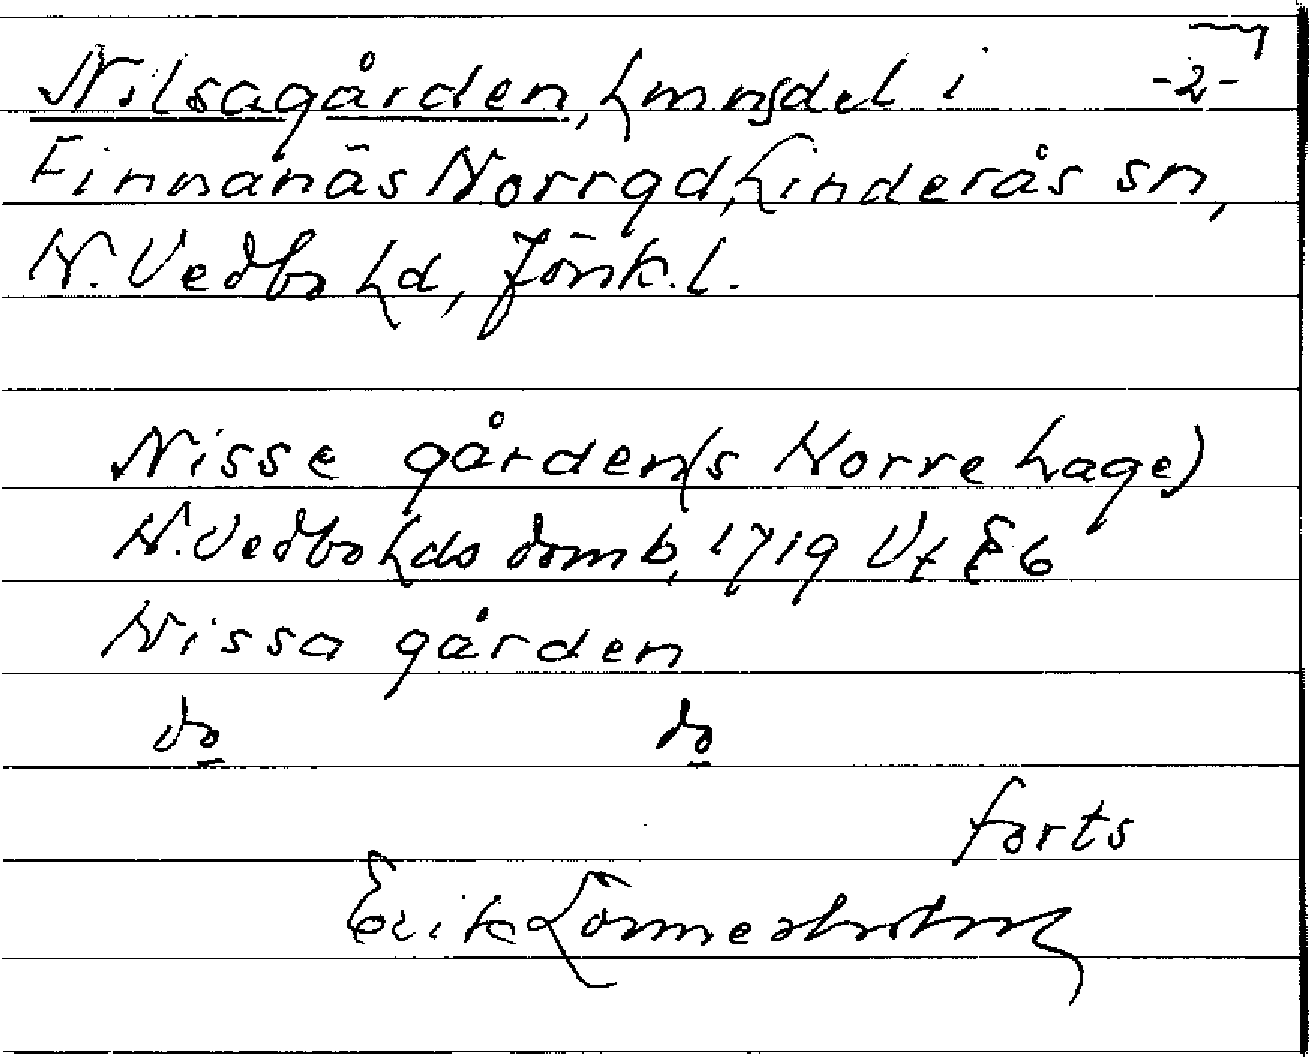 Nilsagården, hmnsdel i -2-
Finnanäs Norrgd, Linderås sn,
N. Vedbo hd, Jönk. l.
Nisse gården(s Norre hage)
N. Vedbo hds domb, 1719 Vt § 6
Nissa gården
do do
forts
Erik Lönnerholm